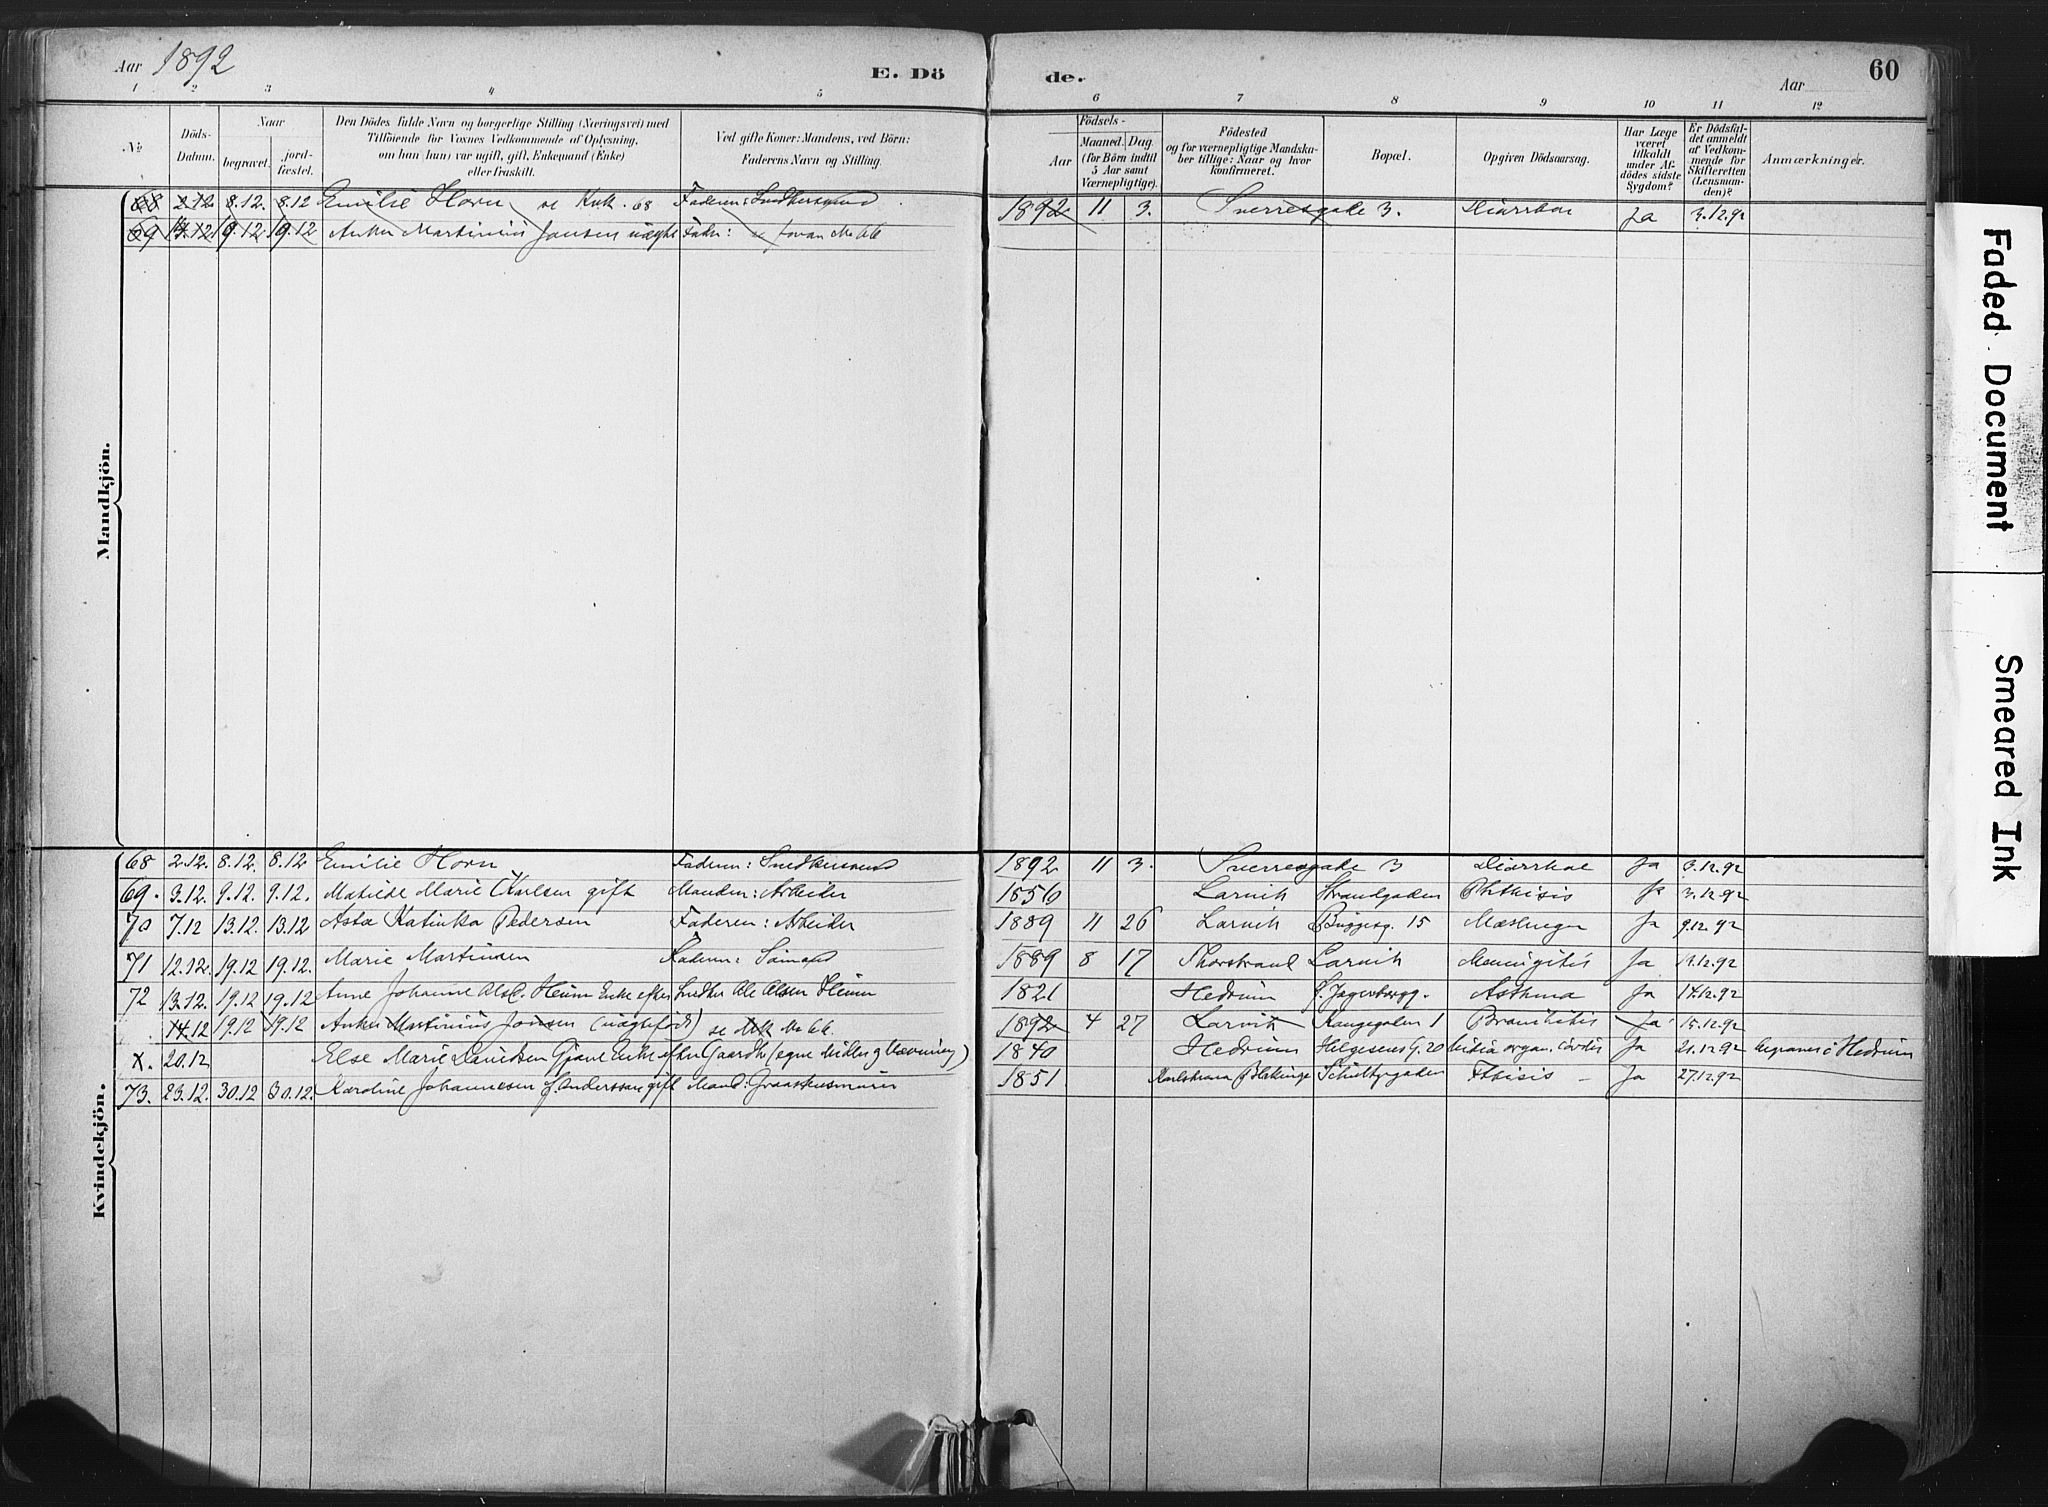 Aar 1892 E. Döde. Aar 60
1 2 3 4 5 6 7 8 9 10 11 12
№
Döds-Datum.
Naar
begravet.
jord-fæstet.
Den Dödes fulde Navn og borgerlige Stilling (Næringsvei) med
Tilföiende for Voxnes Vedkommende af Oplysning,
om han (hun) var ugift, gift, Enkemand (Enke)
eller fraskilt.
Ved gifte Koner: Mandens, ved Börn:
Faderens Navn og Stilling.
Födsels-
Aar
Maaned. Dag.
(for Börn indtil
5 Aar samt
Værnepligtige).
Födested
og for værnepligtige Mandska-
ber tillige: Naar og hvor
konfirmeret.
Bopæl.
Opgiven Dödsaarsag.
Har Læge
været
tilkaldt
under Af-
dödes sidste
Sygdom?
Er Dödsfal-
det anmeldt
af Vedkom-
mende for
Skifteretten
(Lensman-
den)?
Anmærkninger.
Mandkjön.
68 2.12 8.12. 8.12 Emilie Horn se Kvk. 68 Faderen: Snedkersvend 1892 11 3. Sverresgade 3. Diarrhoe Ja 3.12.92
69 14.12 19.12 19.12 Anker Martinius Jonsen uægte Fader: se foran
Kvindekjön.
68 2.12. 8.12. 8.12 Emilie Horn Faderen: Snedkersvend 1892 11 3. Sverresgade 3 Diarrhoe Ja 3.12.92
69. 3.12. 9.12. 9.12. Matilde Marie Karlsen gift Manden: Arbeider 1856 Larvik Strandgaden Phthisis Ja 3.12.92
70 7.12 13.12. 13.12 Asta Katinka Pedersen Faderen: Arbeider 1889 11 26 Larvik Buggesg. 15 Mæslinger Ja 9.12.92
71 12.12. 19.12 19.12. Marie Martinsen Faderen: Sömand 1889 8 17 Thorstrand Larvik Meningitis Ja 13.12.92
72 13.12. 19.12 19.12. Anne Johanne Heum Enke efter Snedker Ole Olsen Heum 1821 Hedrum Asthma Ja 14.12.92
14.12 19.12 19.12 Anker Martinius Jonsen (uægtefödt) se 1892 4 27 Larvik Kongegaden 1 Bronchitis Ja 15.12.92
x. 20.12 Else Marie Davidsen Gjone Enke efter Gaardbr (egne Midler og Næring) 1840 Hedrum Helgesens G. 20 organ. cordis Ja 21.12.92 begraves i Hedrum
73. 23.12. 30.12 30.12. Karoline Johannesen f. Anderssen gift Mand: Graastensmurer 1851 Karlskrona Blekinge Schultzegaden Ftisis Ja 27.12.92
Faded Document
Smeared Ink